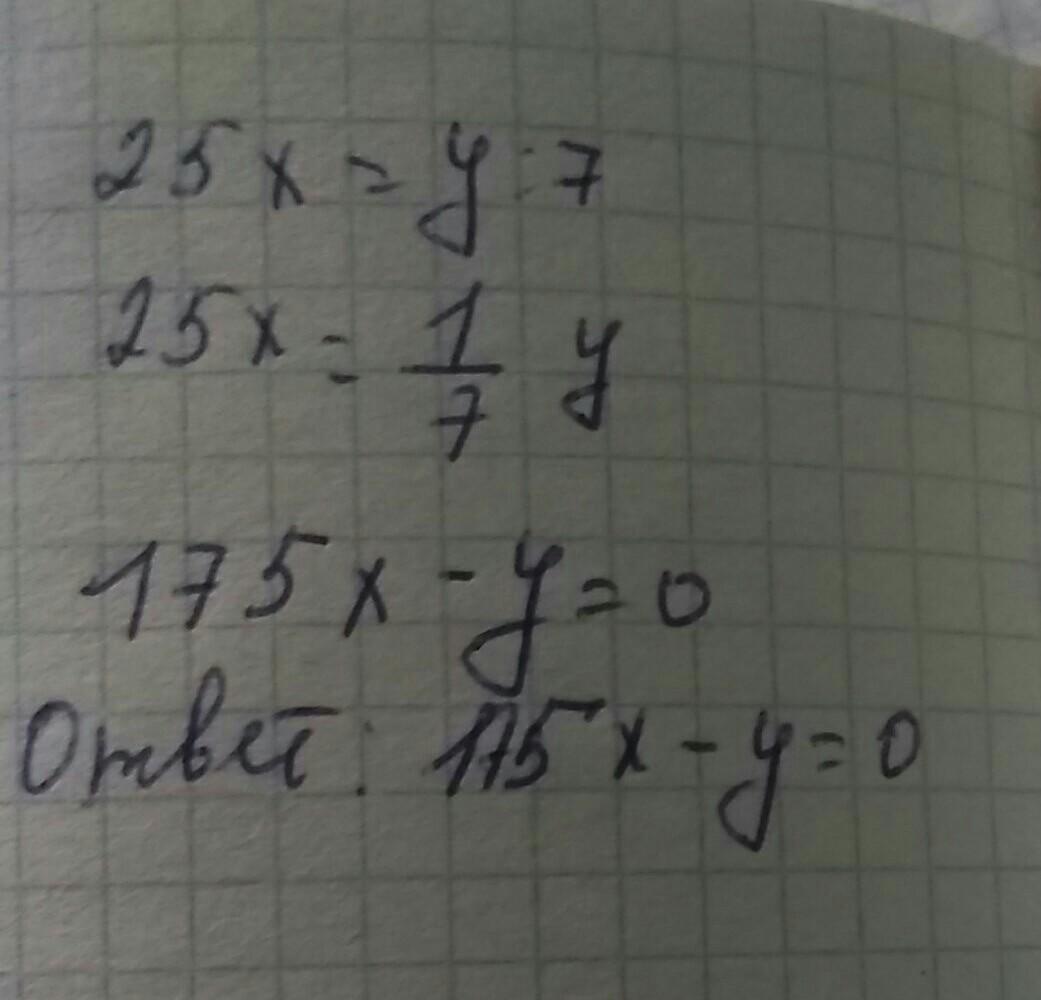 25x = y : 7
25x = 1/7 y
175x - y = 0
Ответ: 175x - y = 0